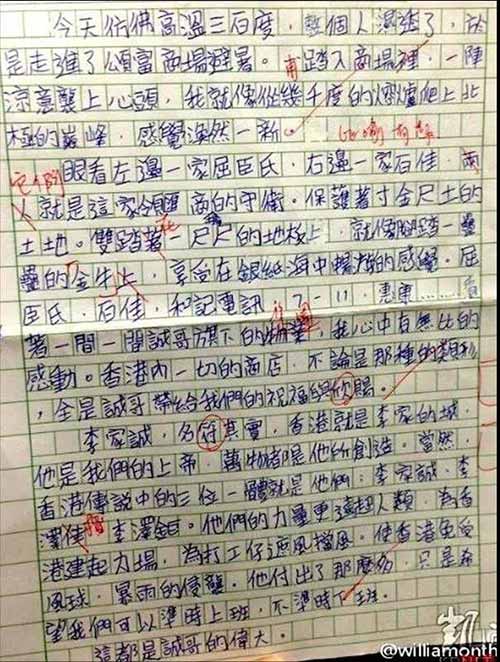 今天彷彿高溫三百度，整個人濕透了，於
是走進了頌富商場避暑。甫踏入商場裡，一陣
涼意襲上心頭，我就像從幾千度的火爐爬上北
極的巔峰，感覺渙然一新。
比喻有趣
眼看左邊一家屈臣氏，右邊一家百佳，兩
它們
人就是這家領匯商的守衛。保護著寸金尺土的
土地。雙踏著一尺尺的地板上，就像腳踏一疊
疊的金牛上，享受在銀紙海中暢游的感覺。屈
臣氏，百佳，和記電訊，7-11，惠康……看
著一間一間誠哥旗下的物業，我心中有無比的
感動。香港內一切的商店，不論是那種的類別
，全是誠哥帶給我們的祝福與欣賜。
李家誠，名符其實，香港就是李家的城。
他是我們的上帝，萬物都是他所創造。當然，
香港傳說中的三位一體就是他們：李家誠、李
澤佳 李澤鉅。他們的力量更遠超人類，為香
楷
港建起力場，為打工仔遮風擋風，使香港免受
風球，暴雨的侵襲。他付出了那麼多，只是希
望我們可以準時上班，不準時下班。
這都是誠哥的偉大。
@williamonth